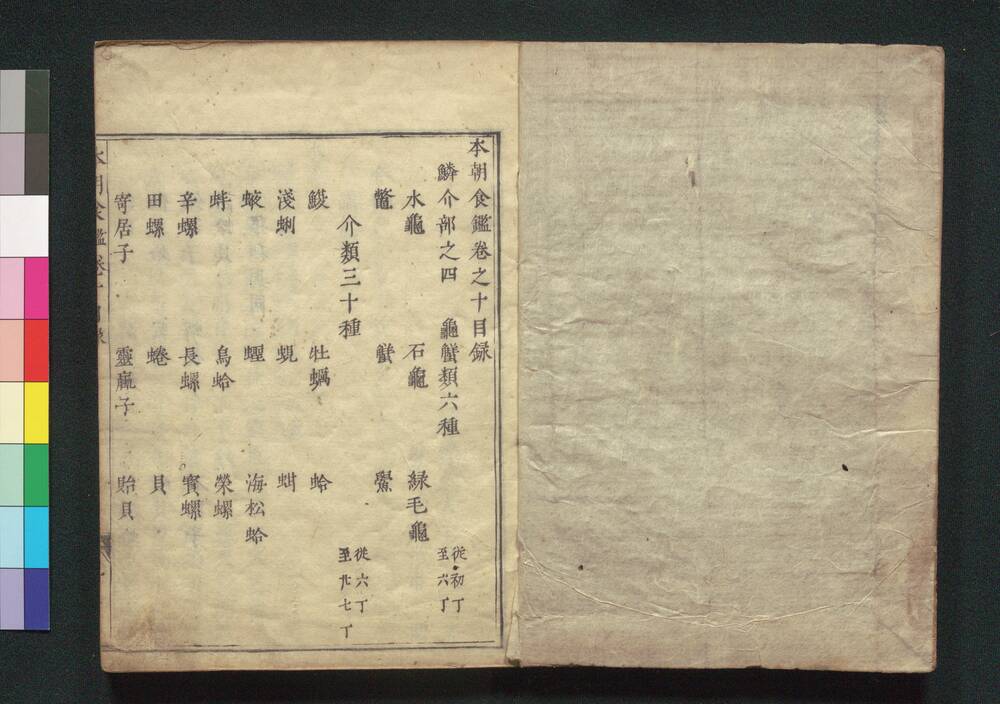 本朝食鑑卷之十目録
鱗介部之四 龜蟹類六種 從初丁
至六丁
水龜 石龜 緑毛龜
鼈 蟹 鱟
介類三十種 從六丁
至廿七丁
鰒 牡蠣 蛤
淺蜊 蜆 蚶
蟶 海松蛤
蚌 烏蛤 榮螺
辛螺 長螺 寳螺
田螺 蜷 貝
寄居子 靈蠃子 貽貝
本朝食鑑卷十目録